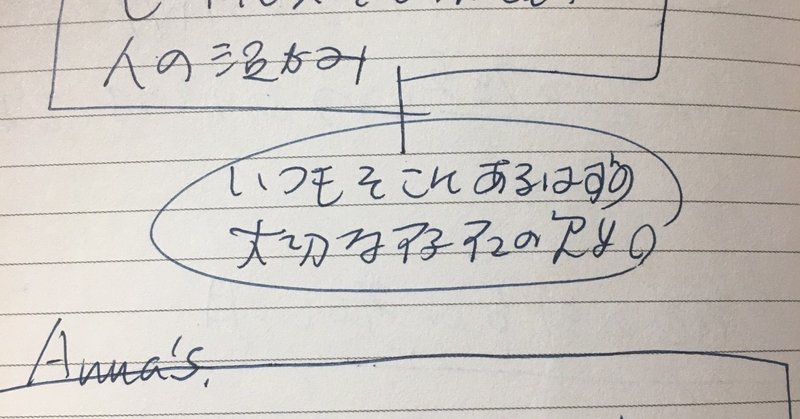 人の温かみ
いつもそこにあるはずの
大切な存在の
Anna's.